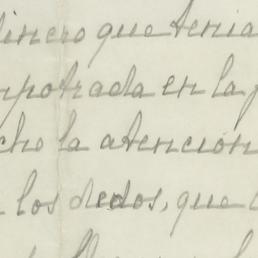 dinero que tenía
mpotrada en la p
cho la atención
los dedos, que